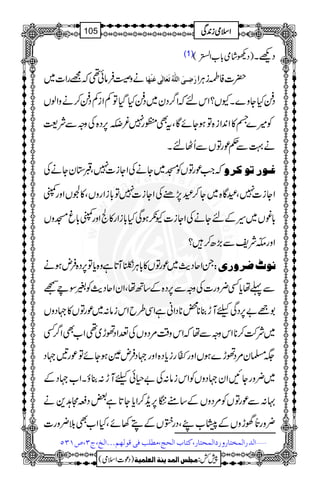 105
اسلامی زندگی
دیکھے۔ (دیکھو شامی باب الستر)(1)
حضرت فاطمہ زہرا رَضِیَ اللّٰہُ تَعَالٰی عَنْہَا نے وصیت فرمائی تھی کہ مجھے رات میں
دفن کیا جاوے۔ کیوں؟ اس لئے کہ اگر دن میں دفن کیا گیا تو کم از کم دفن کرنے والوں
کو میرے جسم کا اندازہ تو ہو جاوے گا، یہ بھی منظور نہیں غرضکہ پردہ کی وجہ سے شریعت
نے بہت سے حکم عورتوں سے اٹھا لئے۔
غور تو کرو کہ جب عورتوں کو مسجد میں جانے کی اجازت نہیں، قبرستان جانے کی
اجازت نہیں، عیدگاہ میں جاکر عید پڑھنے کی اجازت نہیں تو بازاروں، کالجوں اور کمپنی
باغوں میں سیر کے لئے جانے کی اجازت کیونکر ہوگی کیا بازار، کالج اور کمپنی باغ مسجدوں
اور مکہ شریف سے بڑھ کر ہیں؟
نوٹ ضروری: جن احادیث میں عورتوں کا باہر نکلنا آتا ہے وہ یا تو پردہ فرض ہونے
سے پہلے تھا یا کسی ضرورت کی وجہ سے پردہ کے ساتھ تھا، ان احادیث کو بغیر سوچے سمجھے
بوجھے بے پردگی کیلئے آڑ بنانا محض نادانی ہے اسی طرح اس زمانہ میں عورتوں کا جہادوں
میں شرکت کرنا اس وجہ سے تھا کہ اس وقت مردوں کی تعداد تھوڑی تھی اب بھی اگر کسی
جگہ مسلمان مرد تھوڑے ہوں اور کفار زیادہ اور جہاد فرض عین ہو جائے تو عورتیں جہاد
میں ضرور جائیں ان جہادوں کو اس زمانہ کی بے حیائی کیلئے آڑ نہ بناؤ۔ اب جہاد کے
بہانہ سے عورتوں کو مردوں کے سامنے ننگا پریڈ کرایا جاتا ہے بعض دفعہ مجاہدین نے
ضرورتاً گھوڑوں کے پیشاب پئے، درختوں کے پتے کھائے، کیا اب بھی بلا ضرورت
۔۔۔الدرالمختار وردالمحتار، کتاب الحج، مطلب فی قولهم...الخ، ج۳، ص۵۳۱
پیش کش: مجلس المدینة العلمیة (دعوت اسلامی)